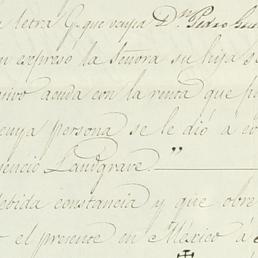 letra G. que ocupa Dn. Pedro
expresó la Señora su hija se
acuda con la renta que
cuya persona se le dió a
Landgrave.
debida constancia y que obre
el presente en México á